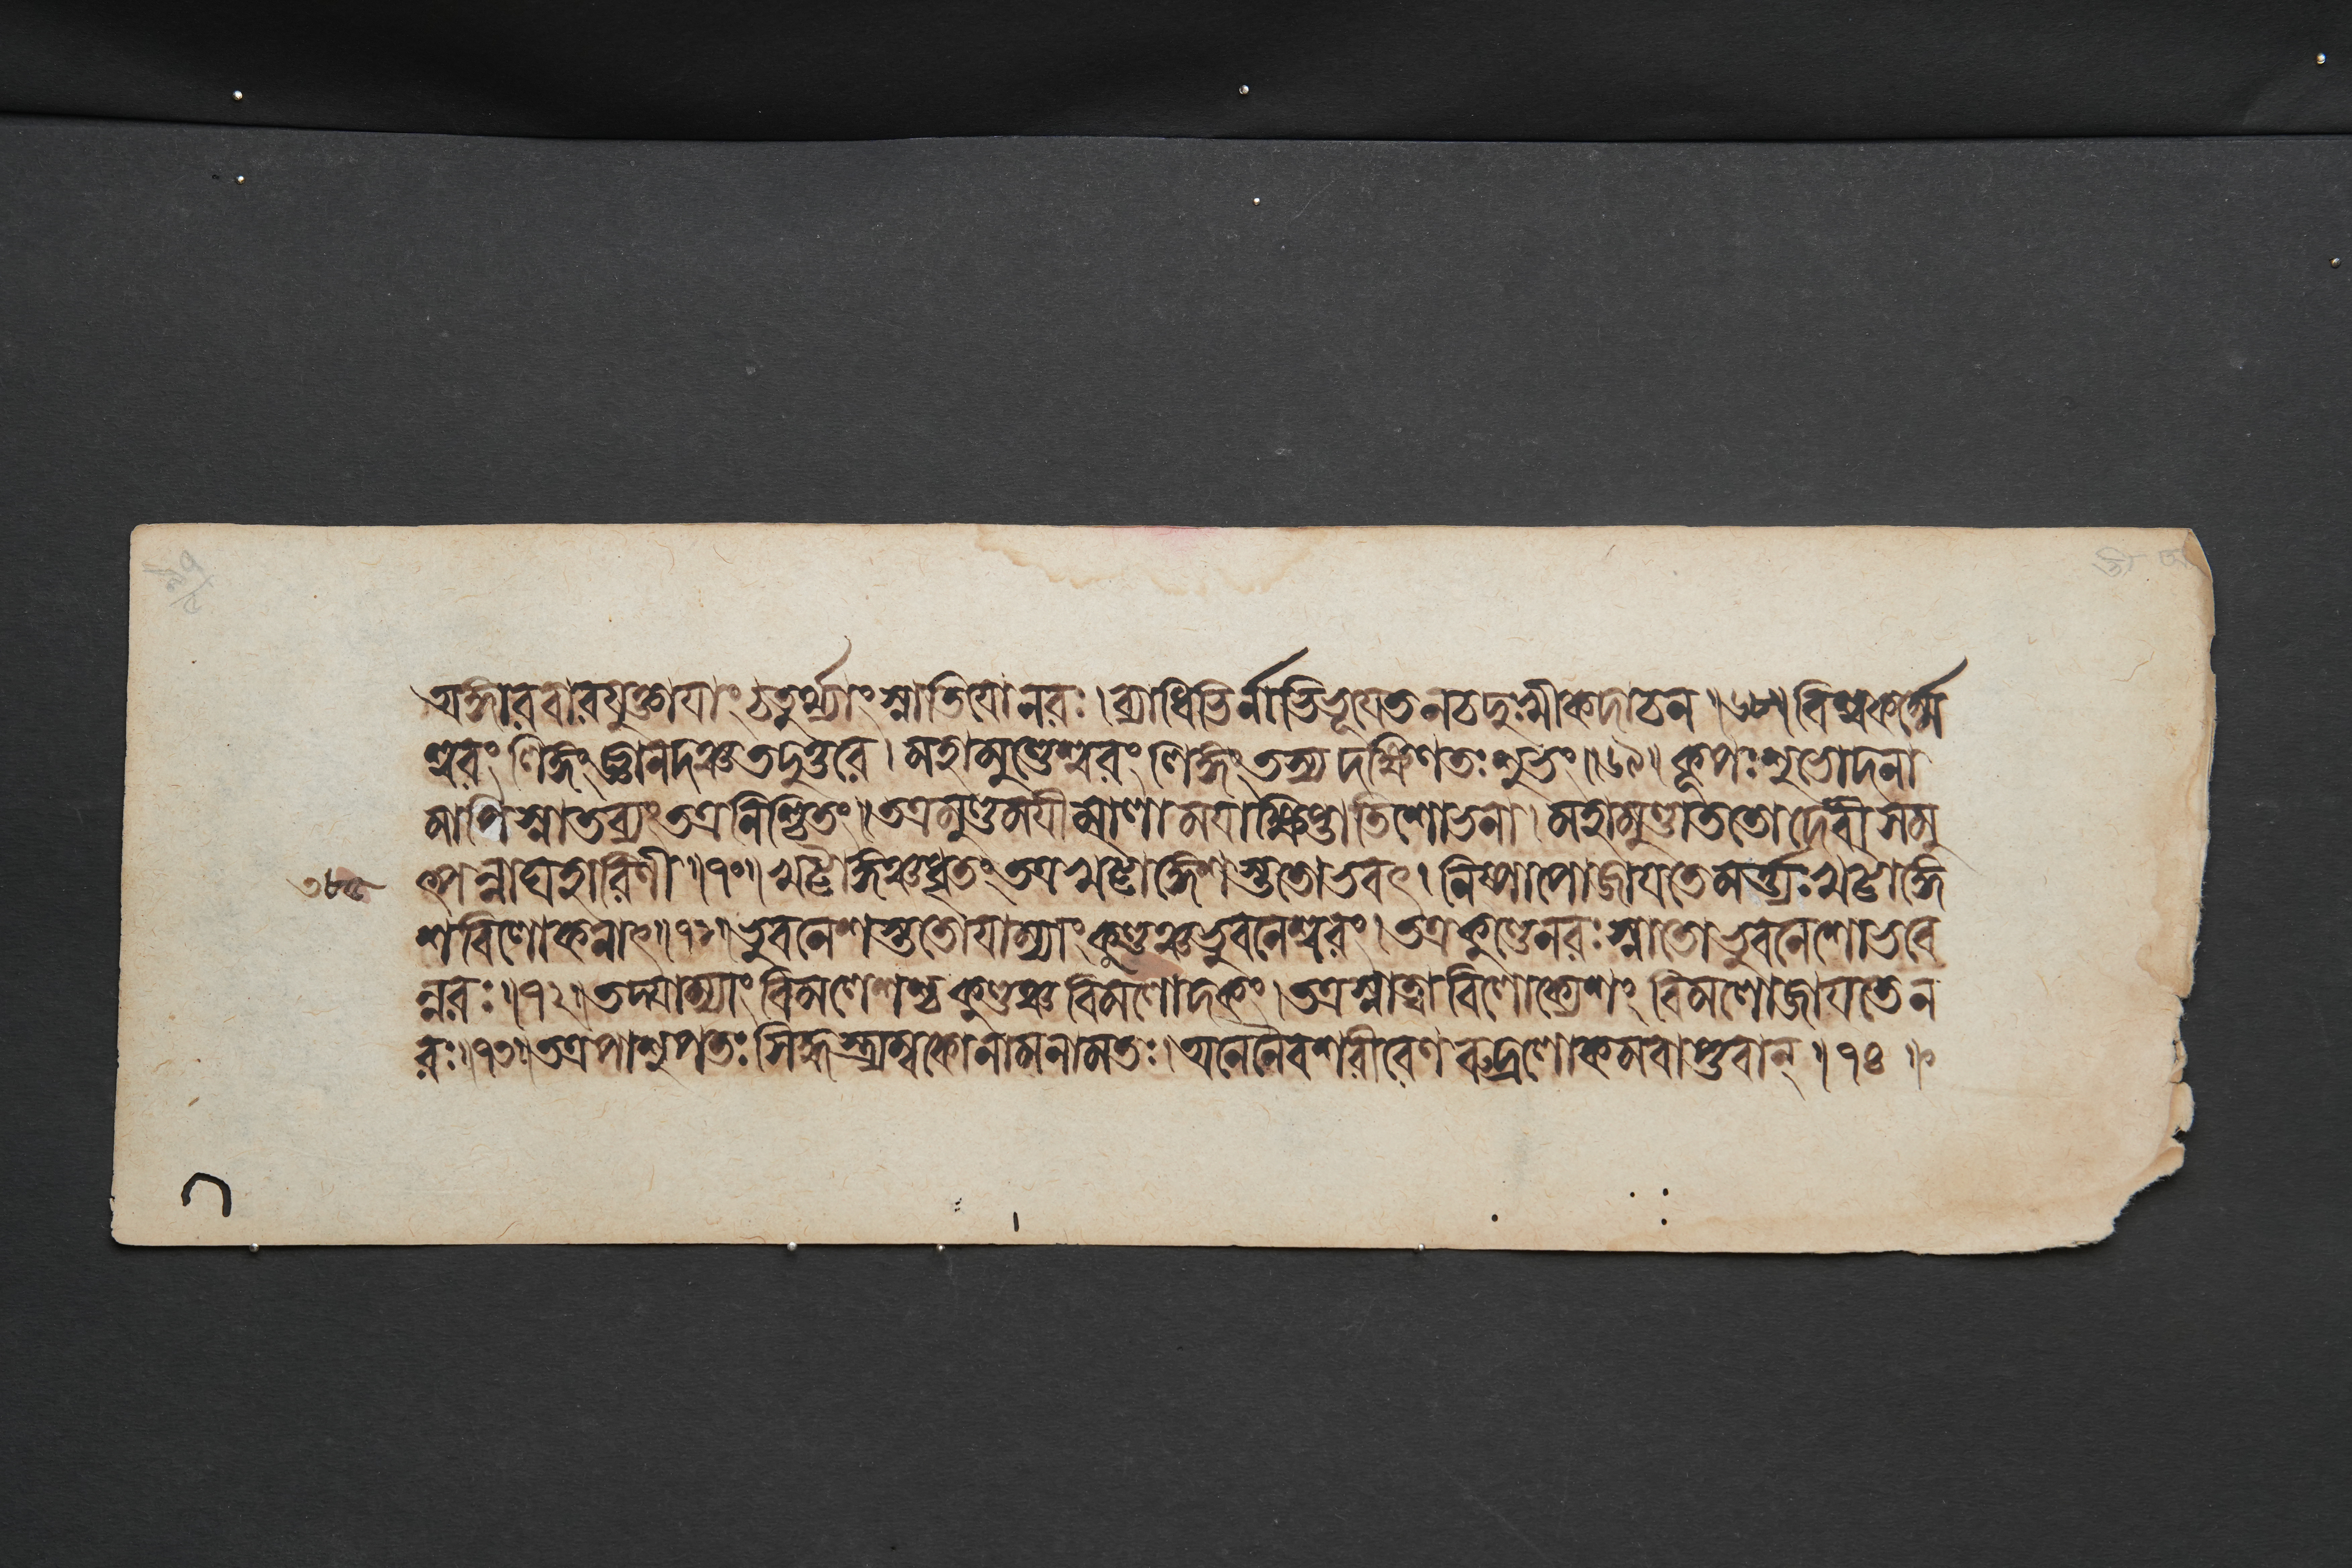 অঙ্গারবারযুক্তাযাং চতুর্থ্যাং স্নাতিযোনরঃ। ব্যাধিভির্নাভিভূযেত নচদুঃখীকদাচন॥৬৮॥ বিশ্বকর্ম্মে
শ্বরং লিঙ্গং জ্ঞানদঞ্চ তদুত্তরে। মহামুণ্ডেশ্বরং লিঙ্গং তস্য দক্ষিণতঃ শুভং॥৬৯॥ কূপঃ শুভোদনা
মাপি স্নাতব্যং তত্র নিশ্চিতং॥ তত্রমুণ্ডমযীমালা মযাক্ষিপ্তাতিশোভনা। মহামুণ্ডাততোদেবী সমু
৩৮৫ ৎপন্নাঘহারিণী॥৭০॥ খট্বাঙ্গঞ্চধৃতং তত্র খট্বাঙ্গেশস্ততোভবৎ। নিষ্পাপোজাযতেমর্ত্ত্যঃ খট্বাঙ্গে
শবিলোকনাৎ॥৭১॥ ভুবনেশস্ততোযাম্যাং কুণ্ডঞ্চভুবনেশ্বরং। তত্রকুণ্ডেনরঃ স্নাতোভুবনেশোভবে
ন্নরঃ॥৭২॥ তদ্যাম্যাং বিমলেশশ্চ কুণ্ডঞ্চ বিমলোদকং। তত্রস্নাত্বা বিলোক্যেশং বিমলোজাযতেন
রঃ॥৭৩॥ তত্রপাশুপতঃ সিদ্ধস্ত্র্যম্বকোনামনামতঃ। অনেনৈবশরীরেণ রুদ্রলোকমবাপ্তবান্॥৭৪॥